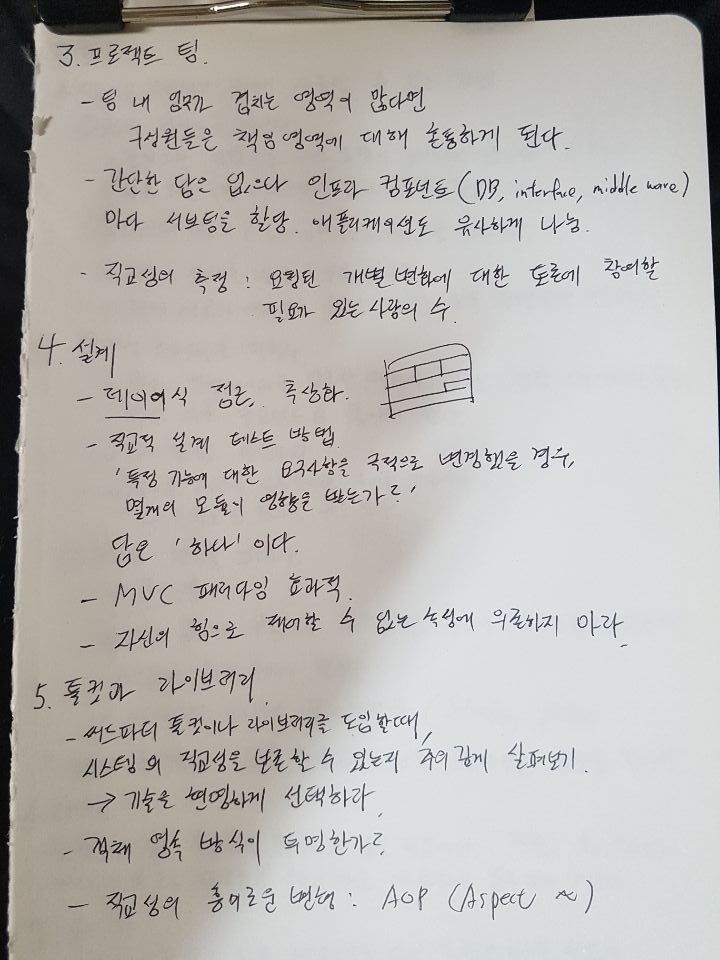 3. 프로젝트 팀.
- 팀 내 업무가 겹치는 영역이 많다면
구성원들은 책임영역에 대해 혼동하게 된다.
- 간단한 답은 없으나 인프라 컴포넌트(DB, interface, middle ware)
마다 서브팀을 할당. 애플리케이션도 유사하게 나눔.
- 직교성의 측정 : 요청된 개별변화에 대한 토론에 참여할
필요가 있는 사람의 수.
4. 설계
- 레이어식 접근, 추상화.
- 직교적 설계 테스트 방법.
'특정 기능에 대한 요구사항을 극적으로 변경했을 경우,
몇개의 모듈이 영향을 받는가?'
답은 '하나' 이다.
- MVC 패러다임 효과적.
- 자신의 힘으로 제어할 수 없는 속성에 의존하지 마라.
5. 툴킷과 라이브러리.
- 써드파티 툴킷이나 라이브러리를 도입할때,
시스템의 직교성을 보존할 수 있는지 주의 깊게 살펴보기.
→ 기술을 현명하게 선택하라.
- 객체 영속 방식이 투명한가?
- 직교성의 흥미로운 변형 : AOP (Aspect ~)